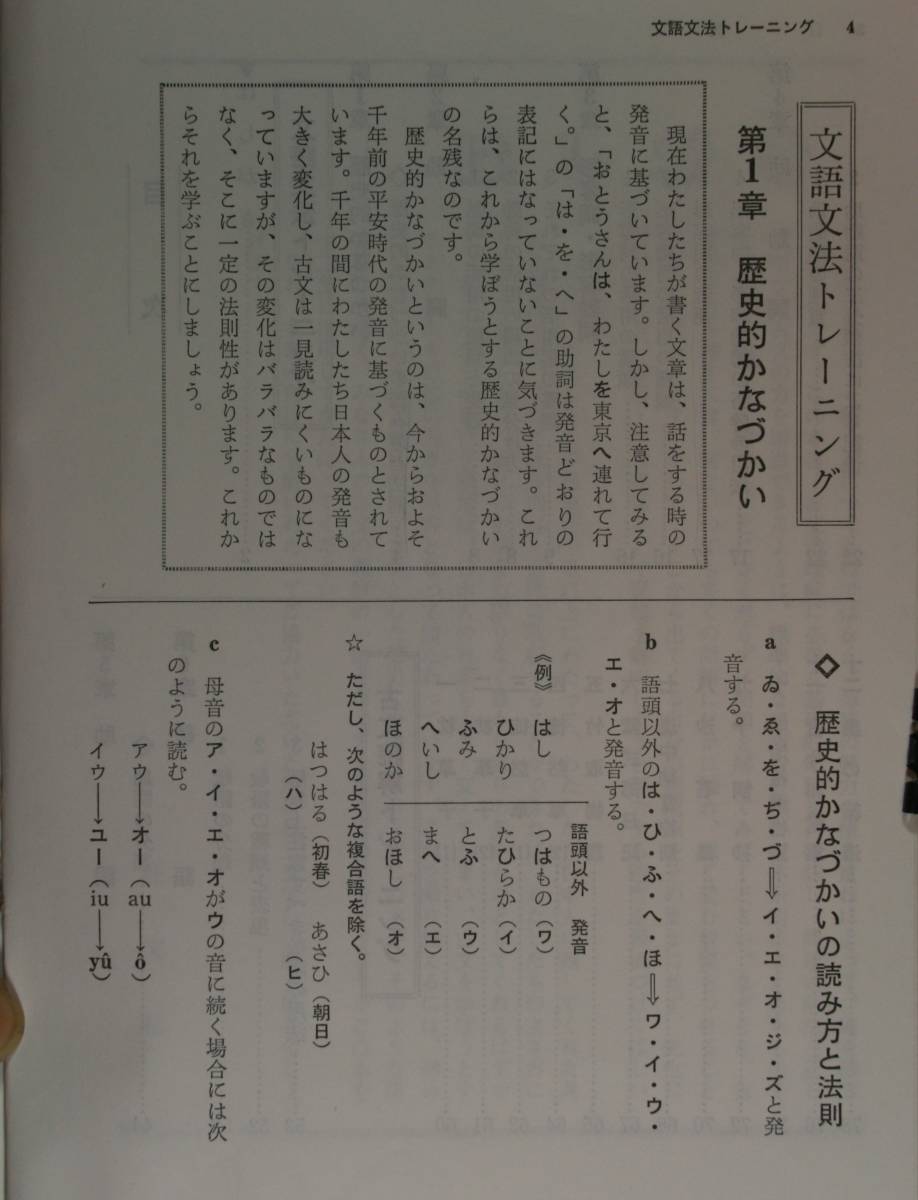 文語文法トレーニング 4
文語文法トレーニング
第1章 歴史的かなづかい
現在わたしたちが書く文章は、話をする時の
発音に基づいています。しかし、注意してみる
と、「おとうさんは、わたしを東京へ連れて行
く。」の「は・を・へ」の助詞は発音どおりの
表記にはなっていないことに気づきます。これ
らは、これから学ぼうとする歴史的かなづかい
の名残なのです。
歴史的かなづかいというのは、今からおよそ
千年前の平安時代の発音に基づくものとされて
います。千年の間にわたしたち日本人の発音も
大きく変化し、古文は一見読みにくいものにな
っていますが、その変化はバラバラなものでは
なく、そこに一定の法則性があります。これか
らそれを学ぶことにしましょう。
◇ 歴史的かなづかいの読み方と法則
a ゐ・ゑ・を・ぢ・づ⇒イ・エ・オ・ジ・ズと発
音する。
b 語頭以外のは・ひ・ふ・へ・ほ⇒ワ・イ・ウ・
エ・オと発音する。
語頭以外 発音
《例》 はし つはもの(ワ)
ひかり たひらか(イ)
ふみ とふ(ウ)
へいし まへ(エ)
ほのか おほし(オ)
☆ ただし、次のような複合語を除く。
はつはる(初春) あさひ(朝日)
(ハ) (ヒ)
c 母音のア・イ・エ・オがウの音に続く場合には次
のように読む。
アウ→オー(au→ô)
イウ→ユー(iu→yû)